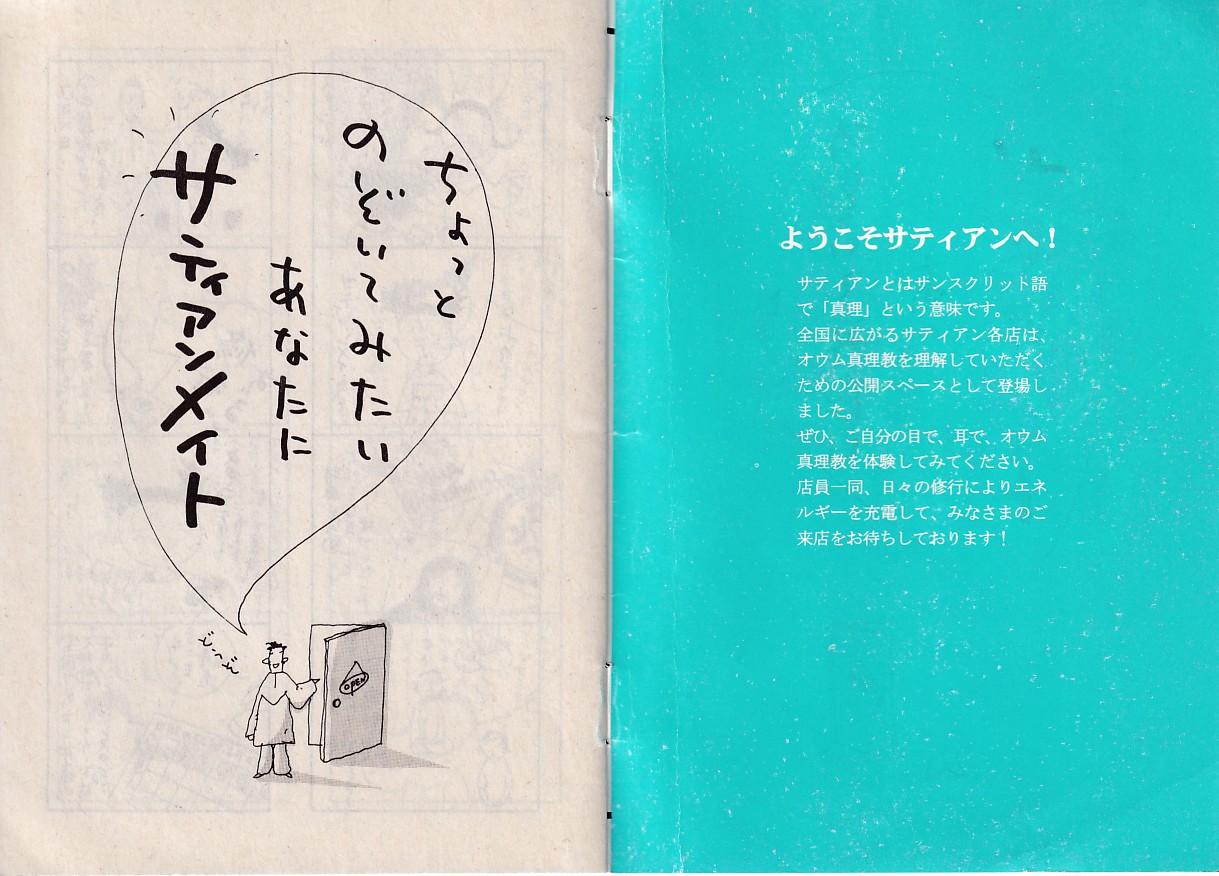 ちょっと
のぞいてみたい
あなたに
サティアンメイト
どーぞ
OPEN
ようこそサティアンへ！
サティアンとはサンスクリット語
で「真理」という意味です。
全国に広がるサティアン各店は、
オウム真理教を理解していただく
ための公開スペースとして登場し
ました。
ぜひ、ご自分の目で、耳で、オウム
真理教を体験してみてください。
店員一同、日々の修行によりエネ
ルギーを充電して、みなさまのご
来店をお待ちしております！